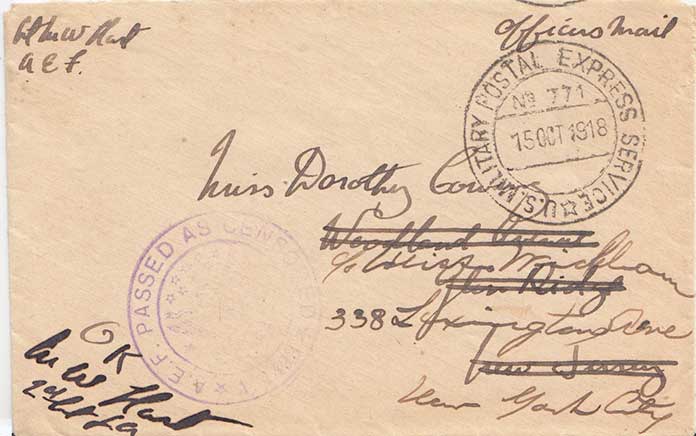 Lt M W Hart
A E F.
Officers Mail
U.S. MILITARY POSTAL EXPRESS SERVICE
No 771
15 OCT 1918
Miss Dorothy
Woodland Avenue
c/o Miss Wickham
Glen Ridge
338 Lexington Ave
New Jersey
New York City
A.E.F. PASSED AS CENSORED
OK
M W Hart
2nd Lt